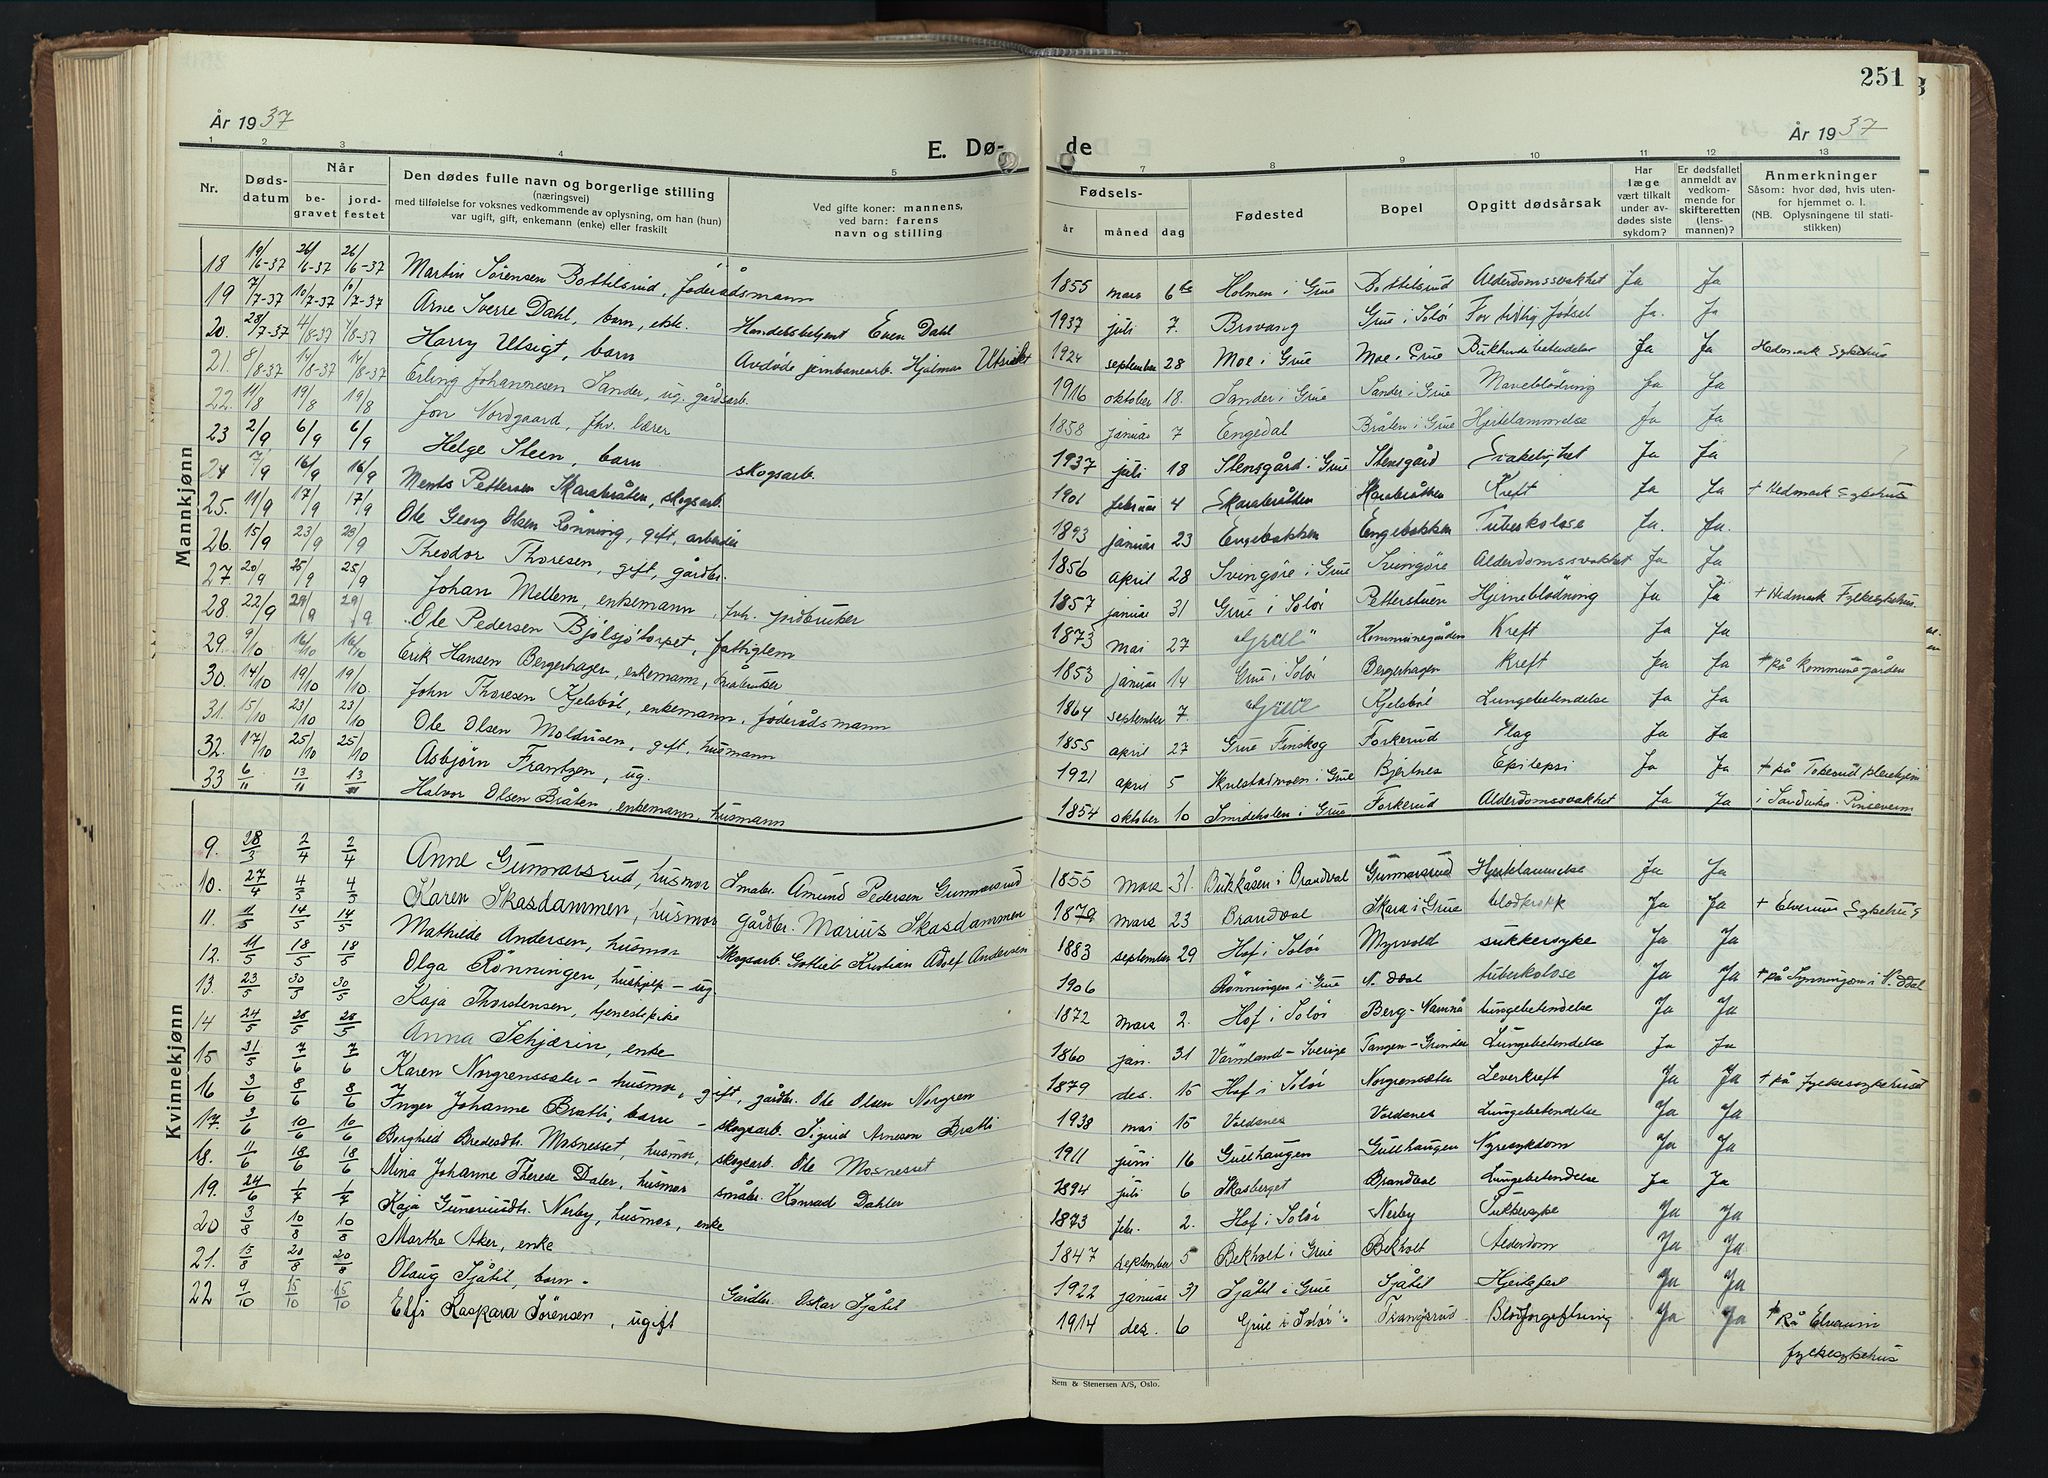 251
År 1937
År 1937
E. Dø-
de
1 2 3 4 5 7 8 9 10 11 12 13
Nr.
Døds-
datum
Når
be-
gravet
jord-
festet
Den dødes fulle navn og borgerlige stilling
(næringsvei)
med tilføielse for voksnes vedkommende av oplysning, om han (hun)
var ugift, gift, enkemann (enke) eller fraskilt
Ved gifte koner: mannens,
ved barn: farens
navn og stilling
Fødsels-
år måned dag
Fødested
Bopel
Opgitt dødsårsak
Har
læge
vært tilkalt
under av-
dødes siste
sykdom?
Er dødsfallet
anmeldt av
vedkom-
mende for
skifteretten
(lens-
mannen)?
Anmerkninger
Såsom: hvor død, hvis uten-
for hjemmet o. l.
(NB. Oplysningene til stati-
stikken)
Mannkjønn
18 19/6-37 26/6-37 26/6-37 Martin Sørensen Bottilsrud, føderådsmann 1855 mars 6te Holmen i Grue Bottilsrud Alderdomssvakhet Ja Ja
19 7/7-37 10/7-37 10/7-37 Arne Sverre Dahl, barn, ekte. Handelsbetjent Even Dahl 1937 juli 7. Brovang Grue i Solør For tidlig fødsel Ja. Ja
20. 28/7-37 4/8-37 4/8-37 Harry Utsigt, barn Avdøde jernbanearb. Hjalmar Utsikt 1924 september 28 Moe i Grue Moe i Grue Bukhindebetendelse Ja Ja Hedmark Sykehus
21. 8/8-37 14/8-37 14/8-37 Erling Johannesen Sander, ug. gårdsarb. 1916 oktober 18. Sander i Grue Sander i Grue Maveblødning Ja Ja
22. 11/8 19/8 19/8 Jon Nordgaard, fhv. lærer 1858 januar 7 Engedal Bråten i Grue Hjertelammelse Ja Ja
23 2/9 6/9 6/9 Helge Steen, barn skogsarb. 1937 juli 18 Stensgård i Grue Stensgård Svakelighet Ja Ja
24 7/9 16/9 16/9 Ments Pettersen Skarabråten, skogsarb. 1901 februar 4 Skarabråtten Skarabråtten Kreft Ja Ja + Hedmark Sykehus
25. 11/9 17/9 17/9 Ole Georg Olsen Rønning, gift, arbeider 1893 januar 23 Engebakken Engebakken Tuberkolose Ja. Ja.
26. 15/9 23/9 23/9 Theodor Thoresen, gift, gårdbr. 1856 april 28 Svingøre i Grue Svingøre Alderdomssvakhet Ja Ja
27. 20/9 25/9 25/9 Johan Mellem, enkemann, fvh. jordbruker 1857 januar 31 Grue i Solør Petterstuen Hjerneblødning Ja Ja + Hedmark Fylkesykehus.
28. 22/9 29/9 29/9 Ole Pedersen Bjølsjøtorpet, fattiglem 1873 mai 27 "Grue" Kommunegården Kreft Ja Ja
29. 9/10 16/10 16/10 Erik Hansen Bergerhagen, enkemann, 1853 januar 14 Grue i Solør Bergerhagen Kreft Ja Ja + på Kommunegården
30. 14/10 19/10 19/10 John Thoresen Kjelsbøl, enkemann, føderådsmann 1864 september 7. Grue Kjelsbøl Lungebetendelse Ja Ja
31. 15/10 23/10 23/10 Ole Olsen Moldusen, gift, husmann 1855 april 27 Grue Finskog Forkerud Slag Ja Ja
32. 17/10 25/10 25/10 Asbjørn Frantzen, ug. 1921 april 5 Skulstadmoen i Grue Bjertnes Epilepsi Ja Ja + på Toverud pleiehjem
33 6/11 13/11 13/11 Halvor Olsen Bråten, enkemann, husmann 1854 oktober 10 Smideholen i Grue Forkerud Alderdomssvakhet Ja Ja i Sandvika
Kvinnekjønn
9. 28/3 2/4 2/4 Anne Gunnarsrud, husmor Småbr. Amund Pedersen Gunnarsrud 1855 Mars 31. Bukkåsen i Brandval Gunnarsrud Hjertelammelse Ja Ja
10. 27/4 4/5 4/5 Karen Skasdammen, husmor Gårdbr. Marius Skasdammen 1879 mars 23 Brandval Skara i Grue blodpropp Ja Ja + Elverum Sykehus
11. 1/5 14/5 14/5 Mathilde Andersen, husmor Skogsarb. Gottlieb Kristian Adolf Andersen 1883 september 29 Hof i Solør Myrvold sukkersyke Ja Ja
12. 11/5 18/5 18/5 Olga Rønningen, hushjelp - ug. 1906 Rønningen i Grue N. Odal tuberkolose Ja Ja + på Lynningom i N. Odal
13. 23/5 30/5 30/5 Kaja Thorstensen, tjenestepike 1872 mars 2. Hof i Solør Berg - Namnå Lungebetendelse Ja Ja
14 24/5 28/5 28/5 Anna Schjærin, enke 1860 jan. 31 Värmland - Sverige Tangen - Grinder Lungebetendelse Ja Ja
15 31/5 7/6 7/6 Karen Norgrenssæter - husmor, gift, gårdbr. Ole Olsen Norgren 1879 des. 15 Hof i Solør Norgrensæter Leverkreft Ja Ja + på fylkessykehuset
16 3/6 8/6 8/6 Inger Johanne Bratli, barn - skogsarb. Sigurd Arneson Bratli 1938 mai 15 Voldsnes Voldsnes Lungebetendelse Ja Ja
17. 3/6 10/6 10/6 Borghild Bredesdtr. Mosnesset, husmor, skogsarb. Ole Mosnesset 1911 juni 16 Gullhaugen Gullhaugen Nyresykdom Ja Ja
18. 11/6 18/6 18/6 Mina Johanne Therese Daler, husmor småbr. Konrad Dahler 1894 juli 6 Skasberget Brandval Lungebetendelse Ja Ja
19. 24/6 1/7 1/7 Kaja Gunerusdtr. Nerby, husmor, enke 1873 febr. 2. Hof i Solør Nerby Sukkersyke Ja Ja
20 3/8 10/8 10/8 Marthe Aker, enke 1847 september 5 Bekholt i Grue Bekholt Alderdom Ja Ja
21. 15/8 20/8 20/8 Olaug Sjåtil, barn - Gårdbr. Oskar Sjåtil 1922 januar 31 Sjåtil i Grue Sjåtil Hjertefeil Ja Ja
22 9/10 15/10 15/10 Elfi Kaspara Sørensen, ugift 1914 des. 6 Grue i Solør Frangsrud Blodforgiftning Ja Ja + på Elverum
fylkesykehus
Sem & Stenersen A/S, Oslo.